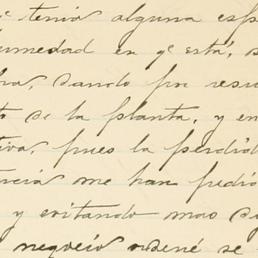 qe tenia alguna esp
umedad en qe está, s
ra, dando por resu
to de la planta, y en
tiva, pues la perdid
ncia me han pedid
y evitando mas d
negocio ordené se